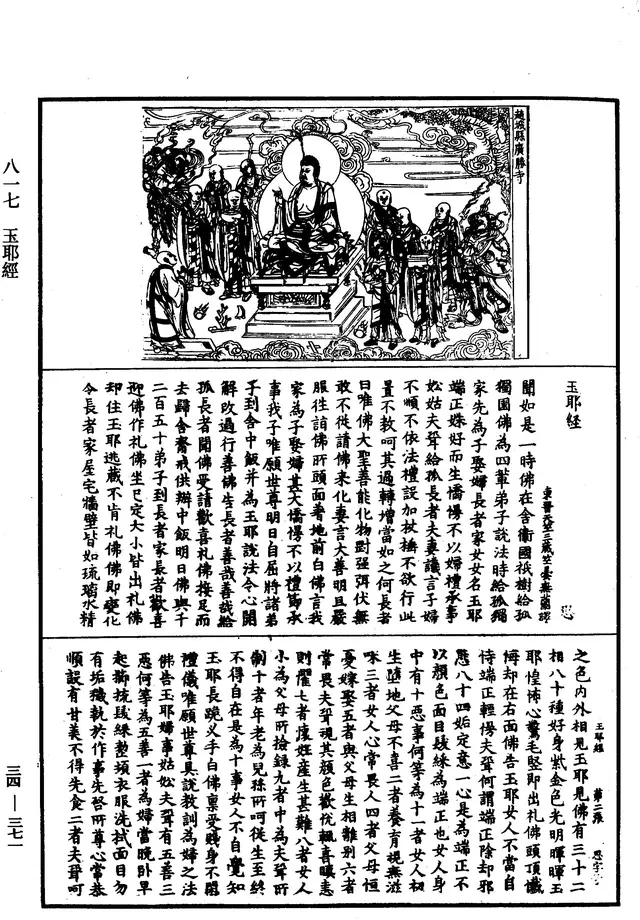 趙城縣廣勝寺
八一七 玉耶經
三四—三七一
玉耶經
東晉天竺三藏竺曇無蘭譯 恩
聞如是一時佛在舍衛國祇樹給孤
獨園佛為四輩弟子說法時給孤獨
家先為子娶婦長者家女女名玉耶
端正姝好而生憍慢不以婦禮承事
妐姑夫聟給孤長者夫妻議言子婦
不順不依法禮設加杖捶不欲行此
置不教呵其過轉增當如之何長者
曰唯佛大聖善能化物對強弭伏無
敢不從請佛來化妻言大善明旦嚴
服往詣佛所頭面著地前白佛言我
家為子娶婦甚大憍慢不以禮節承
事我子唯願世尊明日自屈將諸弟
子到舍中飯并為玉耶說法令心開
解改過行善佛告長者善哉善哉給
孤長者聞佛受請歡喜禮佛接足而
去歸舍齋戒供辦中飯明日佛與千
二百五十弟子到長者家長者歡喜
迎佛作礼佛坐已定大小皆出礼佛
却住玉耶逃藏不肯礼佛佛即變化
令長者家屋宅牆壁皆如琉璃水精
玉耶經 第二張 恩字
之色內外相見玉耶見佛有三十二
相八十種好身紫金色光明暉暉玉
耶惶怖心驚毛竪即出礼佛頭頂懺
悔却在右面佛告玉耶女人不當自
恃端正輕慢夫聟何謂端正除却邪
態八十四姤定意一心是為端正不
以顏色面目髮綵為端正也女人身
中有十惡事何等為十一者女人初
生墮地父母不喜二者養育視無滋
味三者女人心常畏人四者父母恒
憂嫁娶五者與父母生相離別六者
常畏夫聟視其顏色歡悅輒喜瞋恚
則懼七者懷妊產生甚難八者女人
小為父母所撿錄九者中為夫聟所
制十者年老為兒孫所呵從生至終
不得自在是為十事女人不自覺知
玉耶長跪叉手白佛稟受賤身不閑
禮儀唯願世尊具說教訓為婦之法
佛告玉耶婦事妐姑夫聟有五善三
惡何等為五善一者為婦當晚卧早
起櫛梳髮綵整頓衣服洗拭面目勿
有垢穢執於作事先啓所尊心常恭
順設有甘美不得先食二者夫聟呵